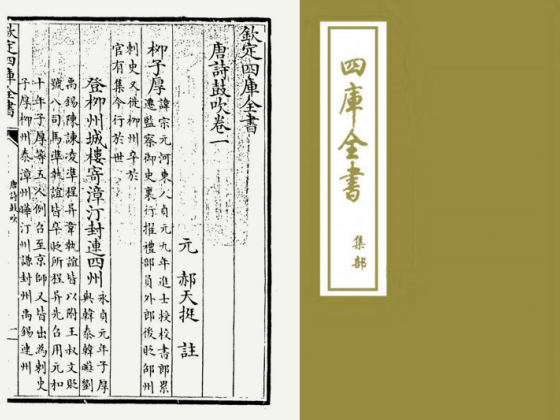 欽定四庫全書
唐詩鼓吹卷一
元 郝天挺 註
柳子厚 諱宗元河東人貞元九年進士授校書郎累
遷監察御史裏行擢禮部員外郎後貶邵州
刺史又徙柳州卒於
官有集今行於世
登柳州城樓寄漳汀封連四州 永貞元年子厚
與韓泰韓曄劉
禹錫陳諫凌準程异韋執誼皆以附王叔文貶
號八司馬準執誼皆卒貶所程异先召用元和
十年子厚等五人例召至京師又皆出為刺史
子厚柳州泰漳州曄汀州諫封州禹錫連州
欽定四庫全書
唐詩鼓吹
四庫全書
集部